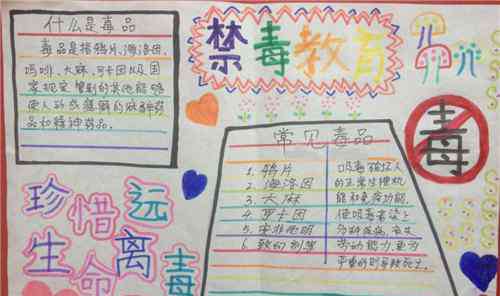 什么是毒品
毒品是指鸦片、海洛因、
吗啡、大麻、可卡因以及国
家规定管制的其他能够
使人形成瘾癖的麻醉药
品和精神药品。
禁毒教育
毒
常见毒品
1. 鸦片
2. 海洛因
3. 大麻
4. 可卡因
5.
6. 致幻剂等
吸毒破坏人
的正常生理机
能和免疫功能,
使吸毒者染上
各种疾病,丧失
劳动能力,更为
严重的则导致死亡。
珍惜
生命
远
离
毒